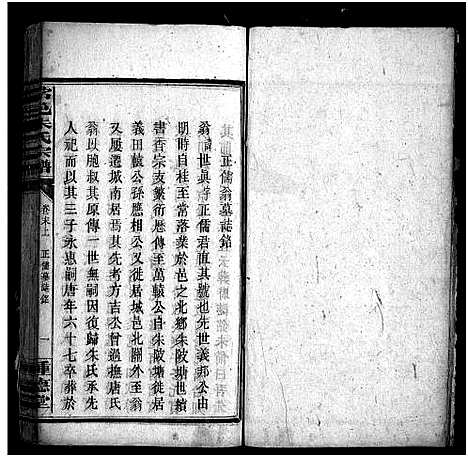 正儒翁墓誌銘
翁諱世眞字正儒君直其號也先世義邦公由
明時自桂至常落業於邑之北鄉朱陂塘世續
書香宗支繁衍歷傳至萬轅公自朱陂塘徙居
義田轅公孫應梅公又徙居城邑北關外至翁
又屢遷城南居焉其先考方吉公曾過撫唐氏
翁以胞叔其原傳一世無嗣因復歸朱氏承先
人祀而以其三子永惠嗣唐年六十七卒葬於
朱氏宗譜
卷末上
正儒墓誌銘
一